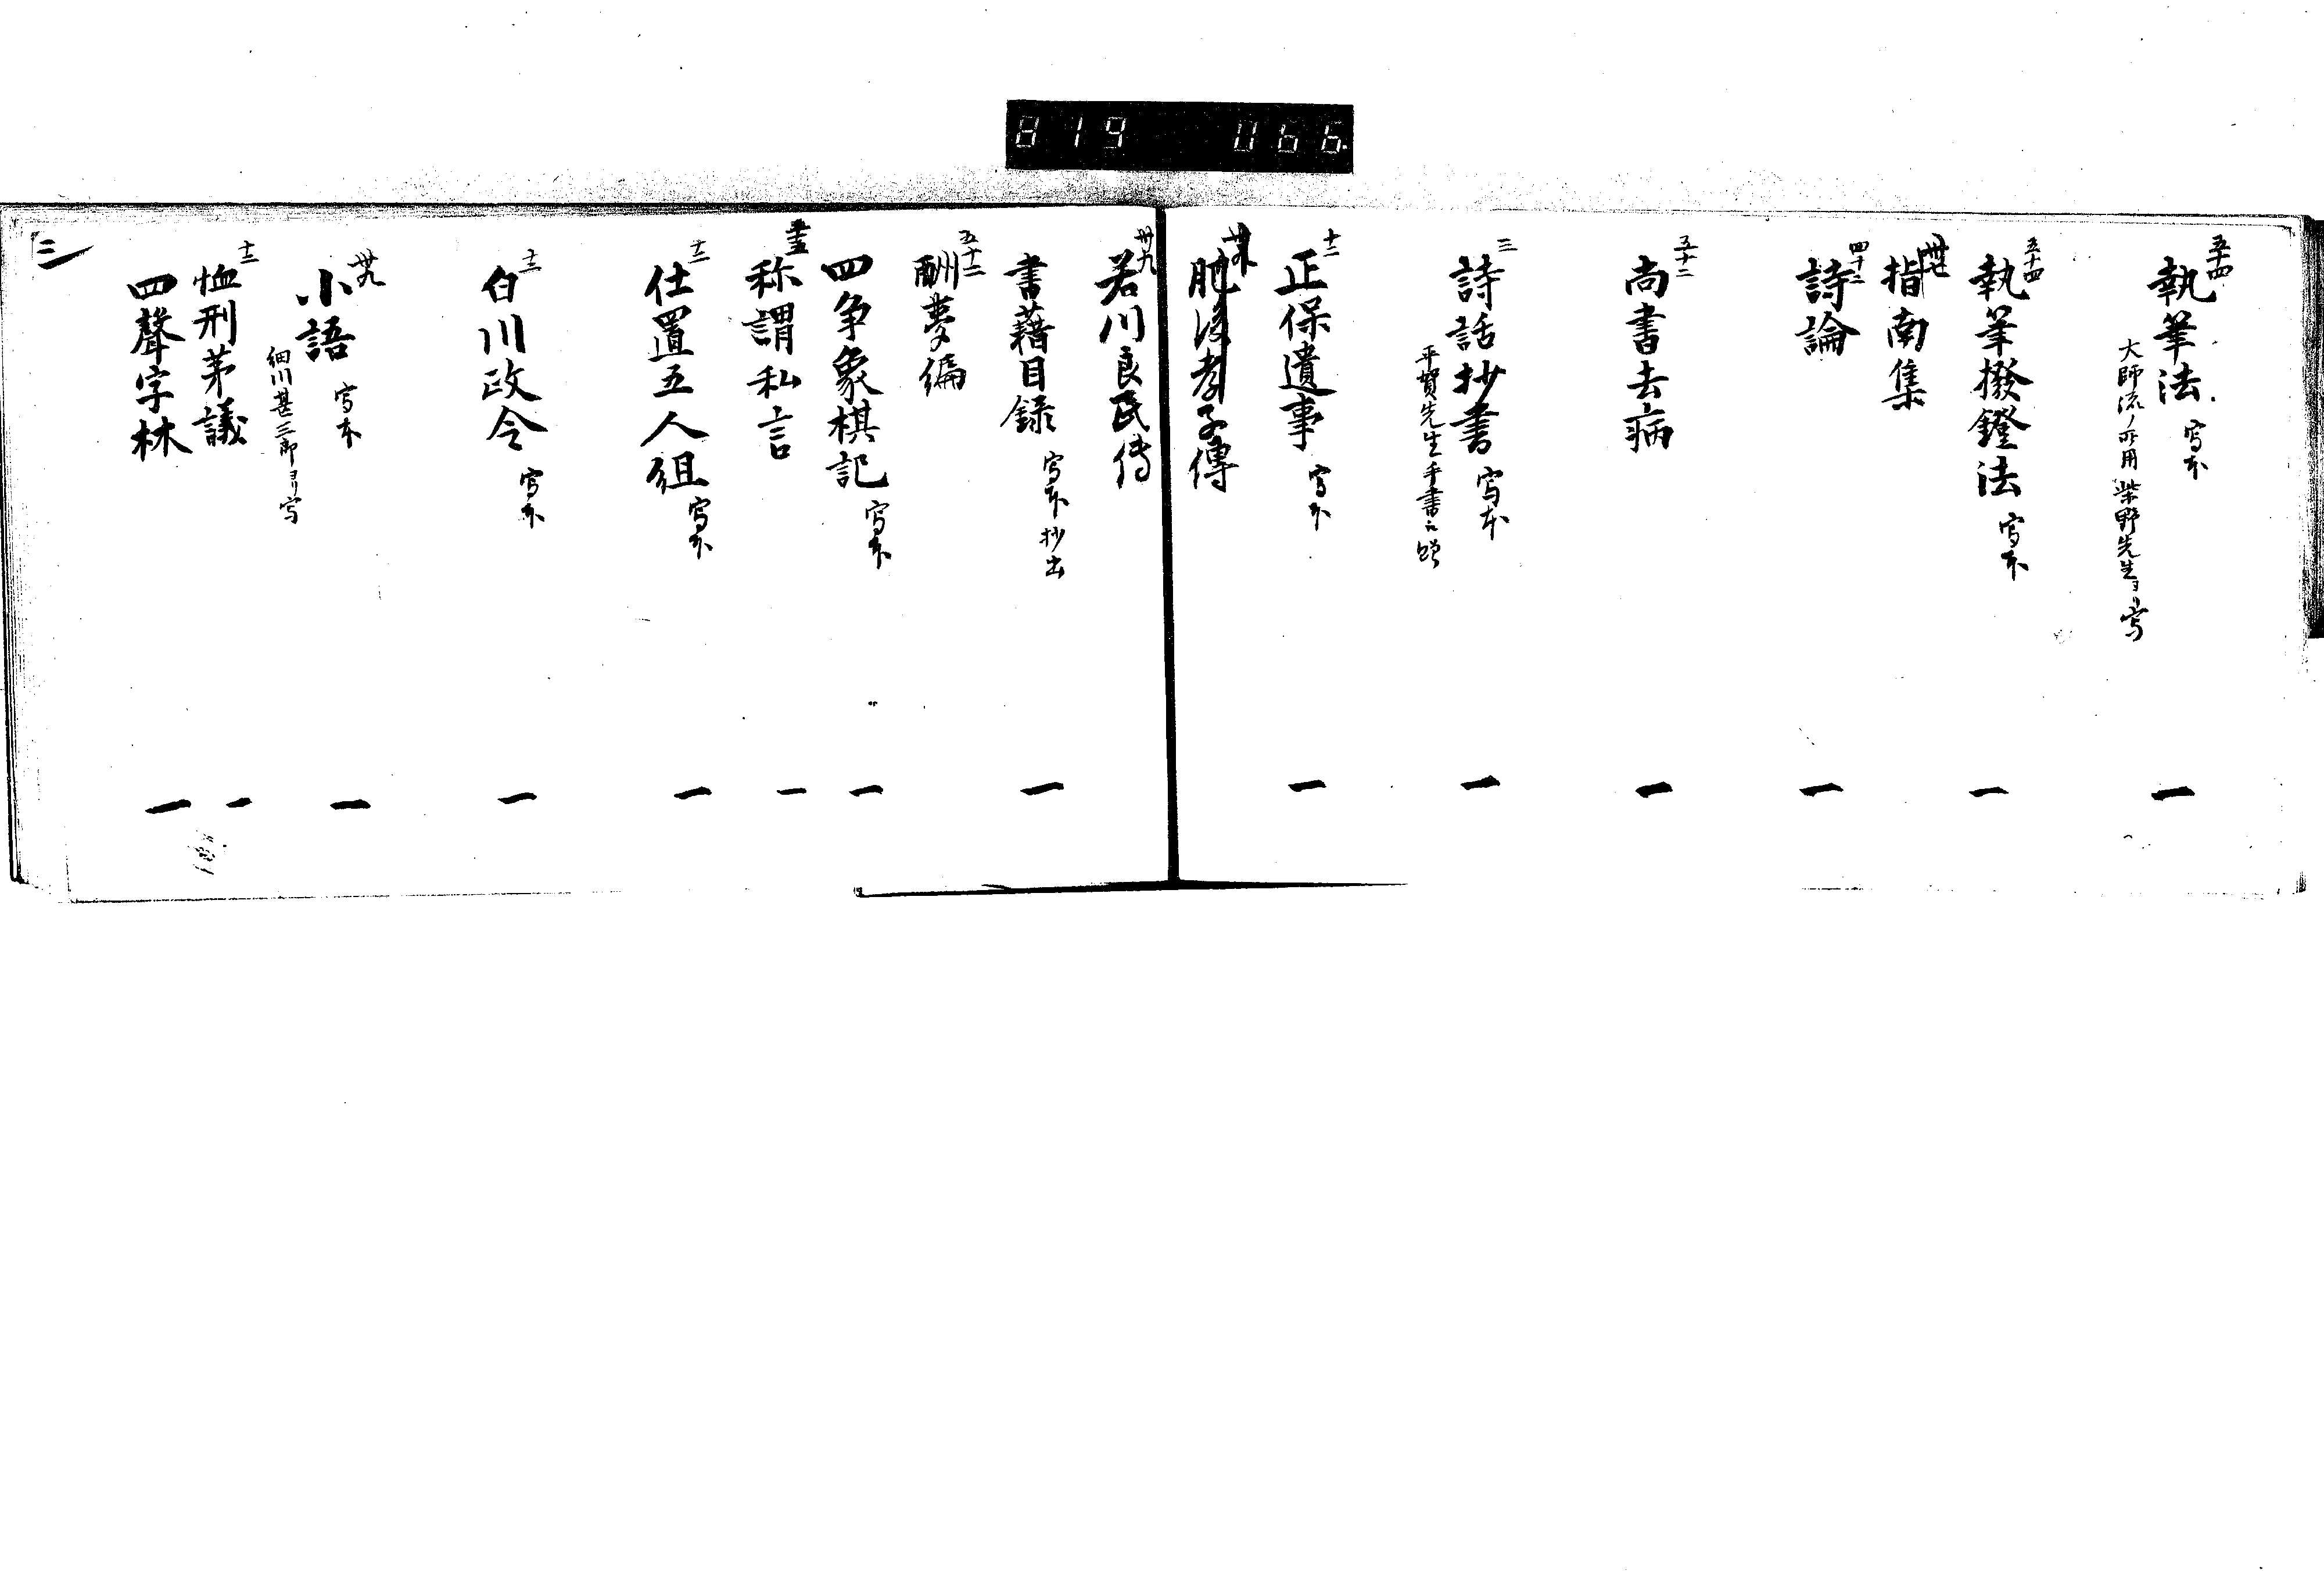 819 066
五十四
執筆法 写本 一
大師流ノ所用 柴野先生ヨリ写
五十四
執筆撥鐙法 写本 一
卅七
指南集
四十二
詩論 一
五十二
尚書去病 一
三
詩話抄書 写本 一
平賀先生手書ニ
十二
正保遺事 写本 一
肥後孝子傳
卅九
若川良民傳
書藉目録 写本 抄出 一
五十二
酬夢編
四争象棋記 写本 一
称謂私言 一
十二
仕置五人組 写本 一
十二
白川政令 写本 一
卅九
小語 写本 一
細川甚三郎ヨリ写
十二
恤刑茅議 一
四聲字林 一
三